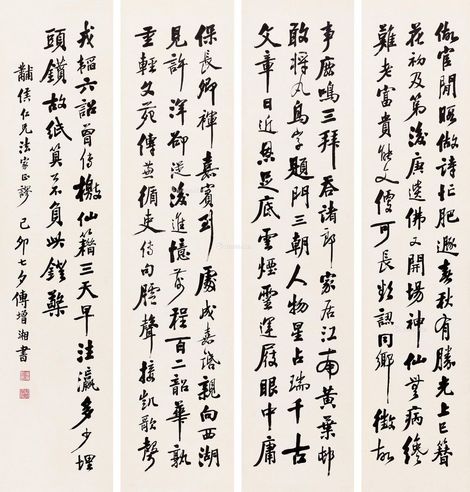 做官閒暇做詩忙肥遯春秋有勝光上巳簪
花初及第後唐選佛又開場神仙無病纔
難老富貴能文便可長題認同鄉徵故
事臚鳴三拜吞諸郎家居江南黃葉邨
敢將凡鳥字題門三朝人物星占瑞千古
文章日近恩足底雲煙靈運屐眼中庸
保長卿褌嘉賓到處成嘉話親向西湖
見許渾卻從後進憶前程百二韶華孰
重輕文苑傳兼循吏傳句臚聲接凱歌聲
戎韜六詔曾傳檄仙籍三天早注瀛多少埋
頭鑽故紙算不負此鐙檠
黼侯仁兄法家正謬 己卯七夕傅增湘書